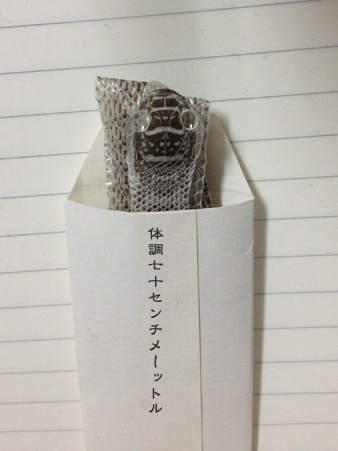 体調七十センチメーットル